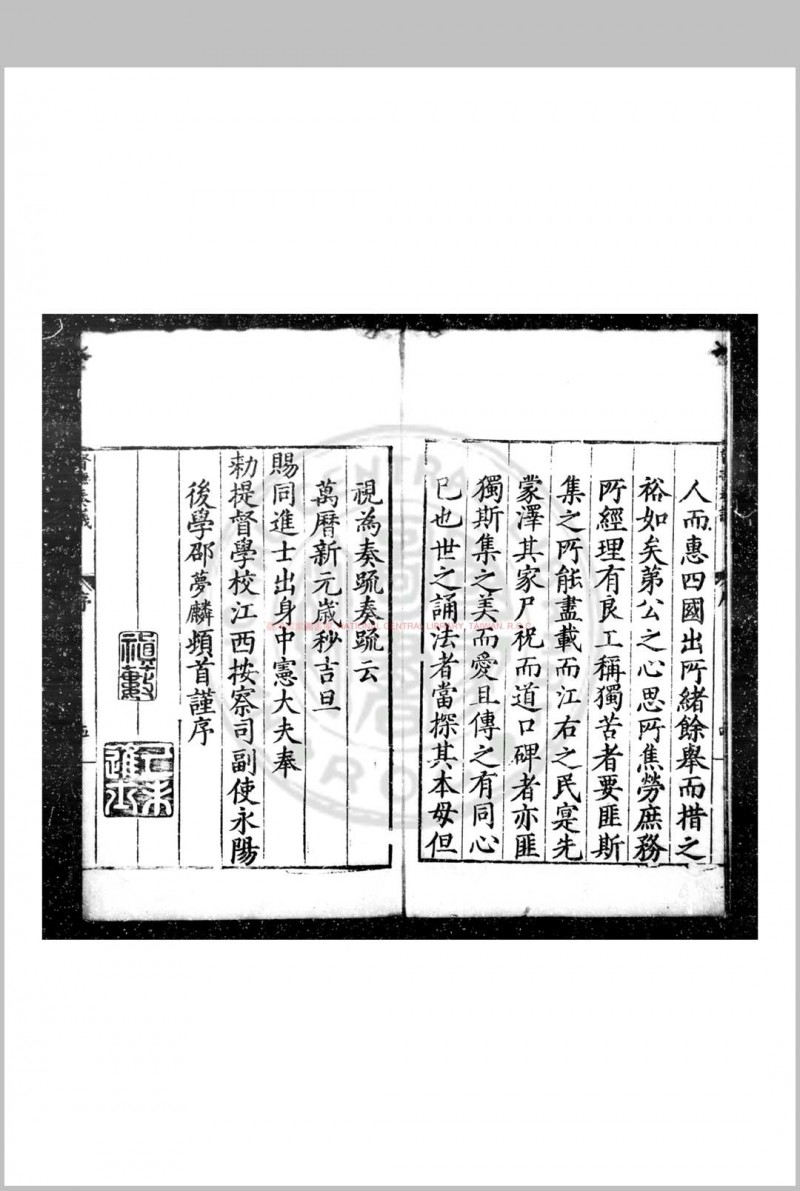 人而惠四國出所緒餘舉而措之
裕如矣第公之心思所焦勞庶務
所經理有良工稱獨苦者要匪斯
集之所能盡載而江右之民寔先
蒙澤其家尸祝而道口碑者亦匪
獨斯集之美而愛且傳之有同心
已也世之誦法者當探其本毋但
視為奏疏奏疏云
萬曆新元歲秒吉旦
賜同進士出身中憲大夫奉
勑提督學校江西按察司副使永陽
後學邵夢麟頓首謹序
己未進士
NATIONAL CENTRAL LIBRARY, TAIWAN, R.O.C.